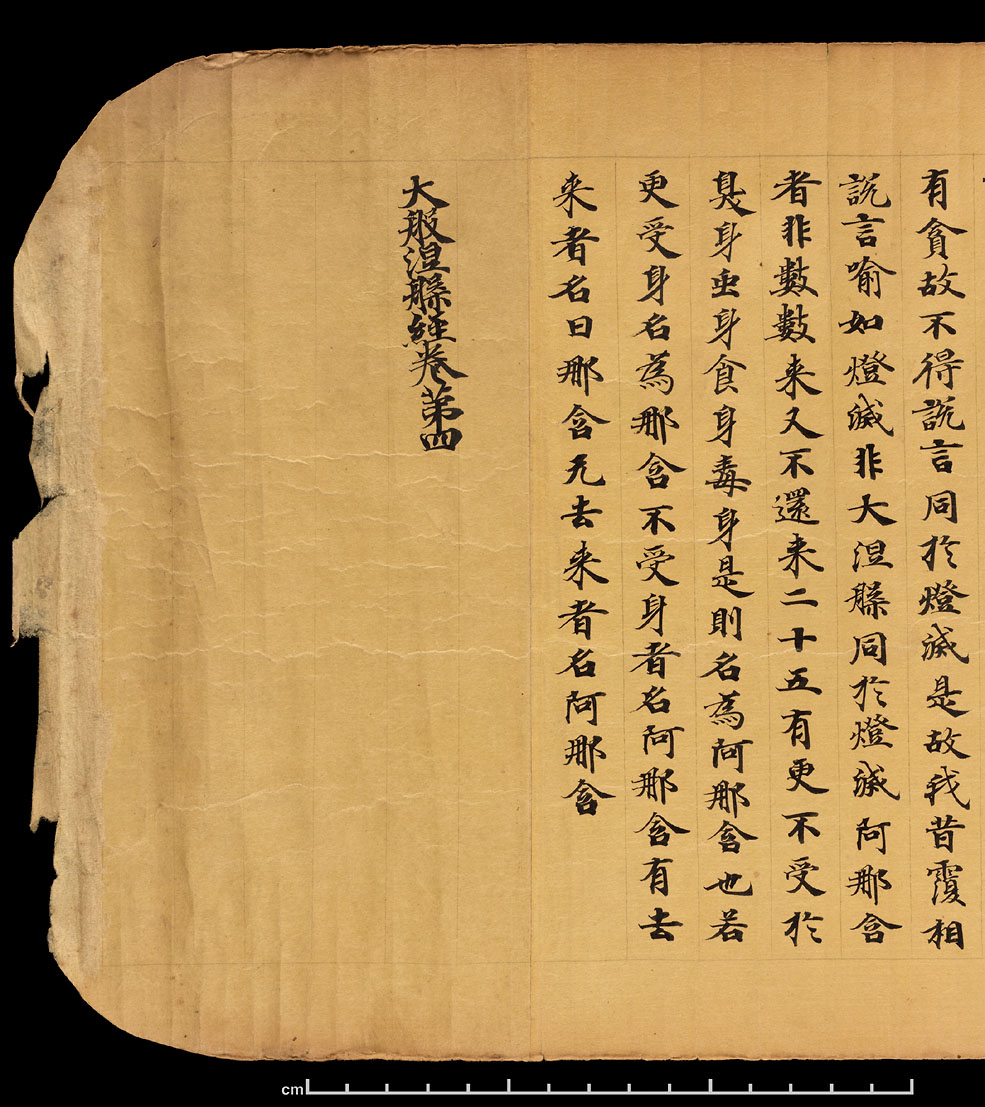 有貪故不得說言同於燈滅是故我昔覆相
說言喻如燈滅非大涅槃同於燈滅阿那含
者非數數来又不還来二十五有更不受於
臭身虫身食身毒身是則名為阿那含也若
更受身名為那含不受身者名阿那含有去
来者名曰那含无去来者名阿那含
大般涅槃經卷第四
cm